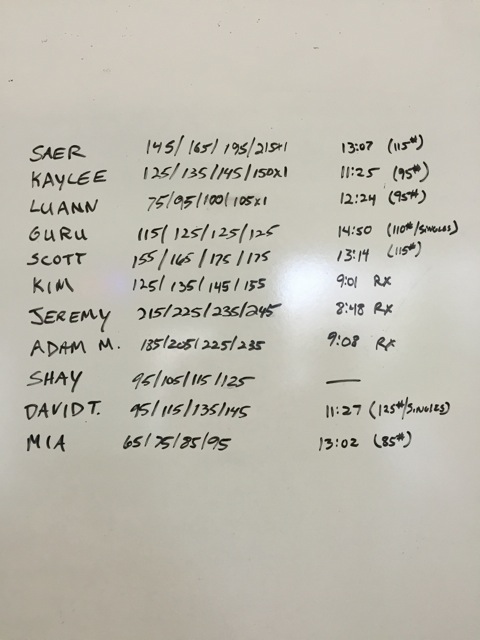 SAER 145/165/195/215x1 13:07 (115#)
KAYLEE 125/135/145/150x1 11:25 (95#)
LUANN 75/95/100/105x1 12:24 (95#)
GURU 115/125/125/125 14:50 (110#/SINGLES)
SCOTT 155/165/175/175 13:14 (115#)
KIM 125/135/145/155 9:01 RX
JEREMY 215/225/235/245 8:48 RX
ADAM M. 185/205/225/235 9:08 RX
SHAY 95/105/115/125 —
DAVID T. 95/115/135/145 11:27 (125#/SINGLES)
MIA 65/75/85/95 13:02 (85#)